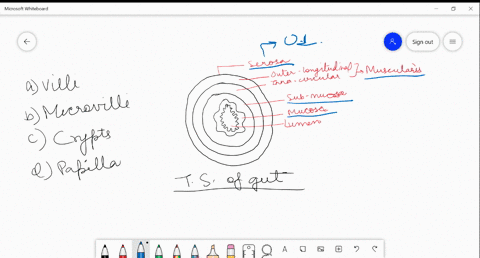 Microsoft Whiteboard
Sign out
O1.
Serosa
outer-longitudinal
inner-circular
Muscularis
Sub-mucosa
Mucosa
Lumen
a) ville
b) Microville
c) Crypts
d) Papilla
T.S. of gut